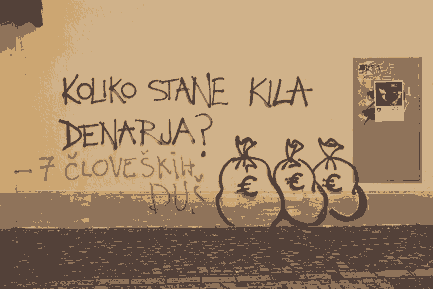 KOLIKO STANE KILA
DENARJA?
- 7 ČLOVEŠKIH
DUŠ
€ € €